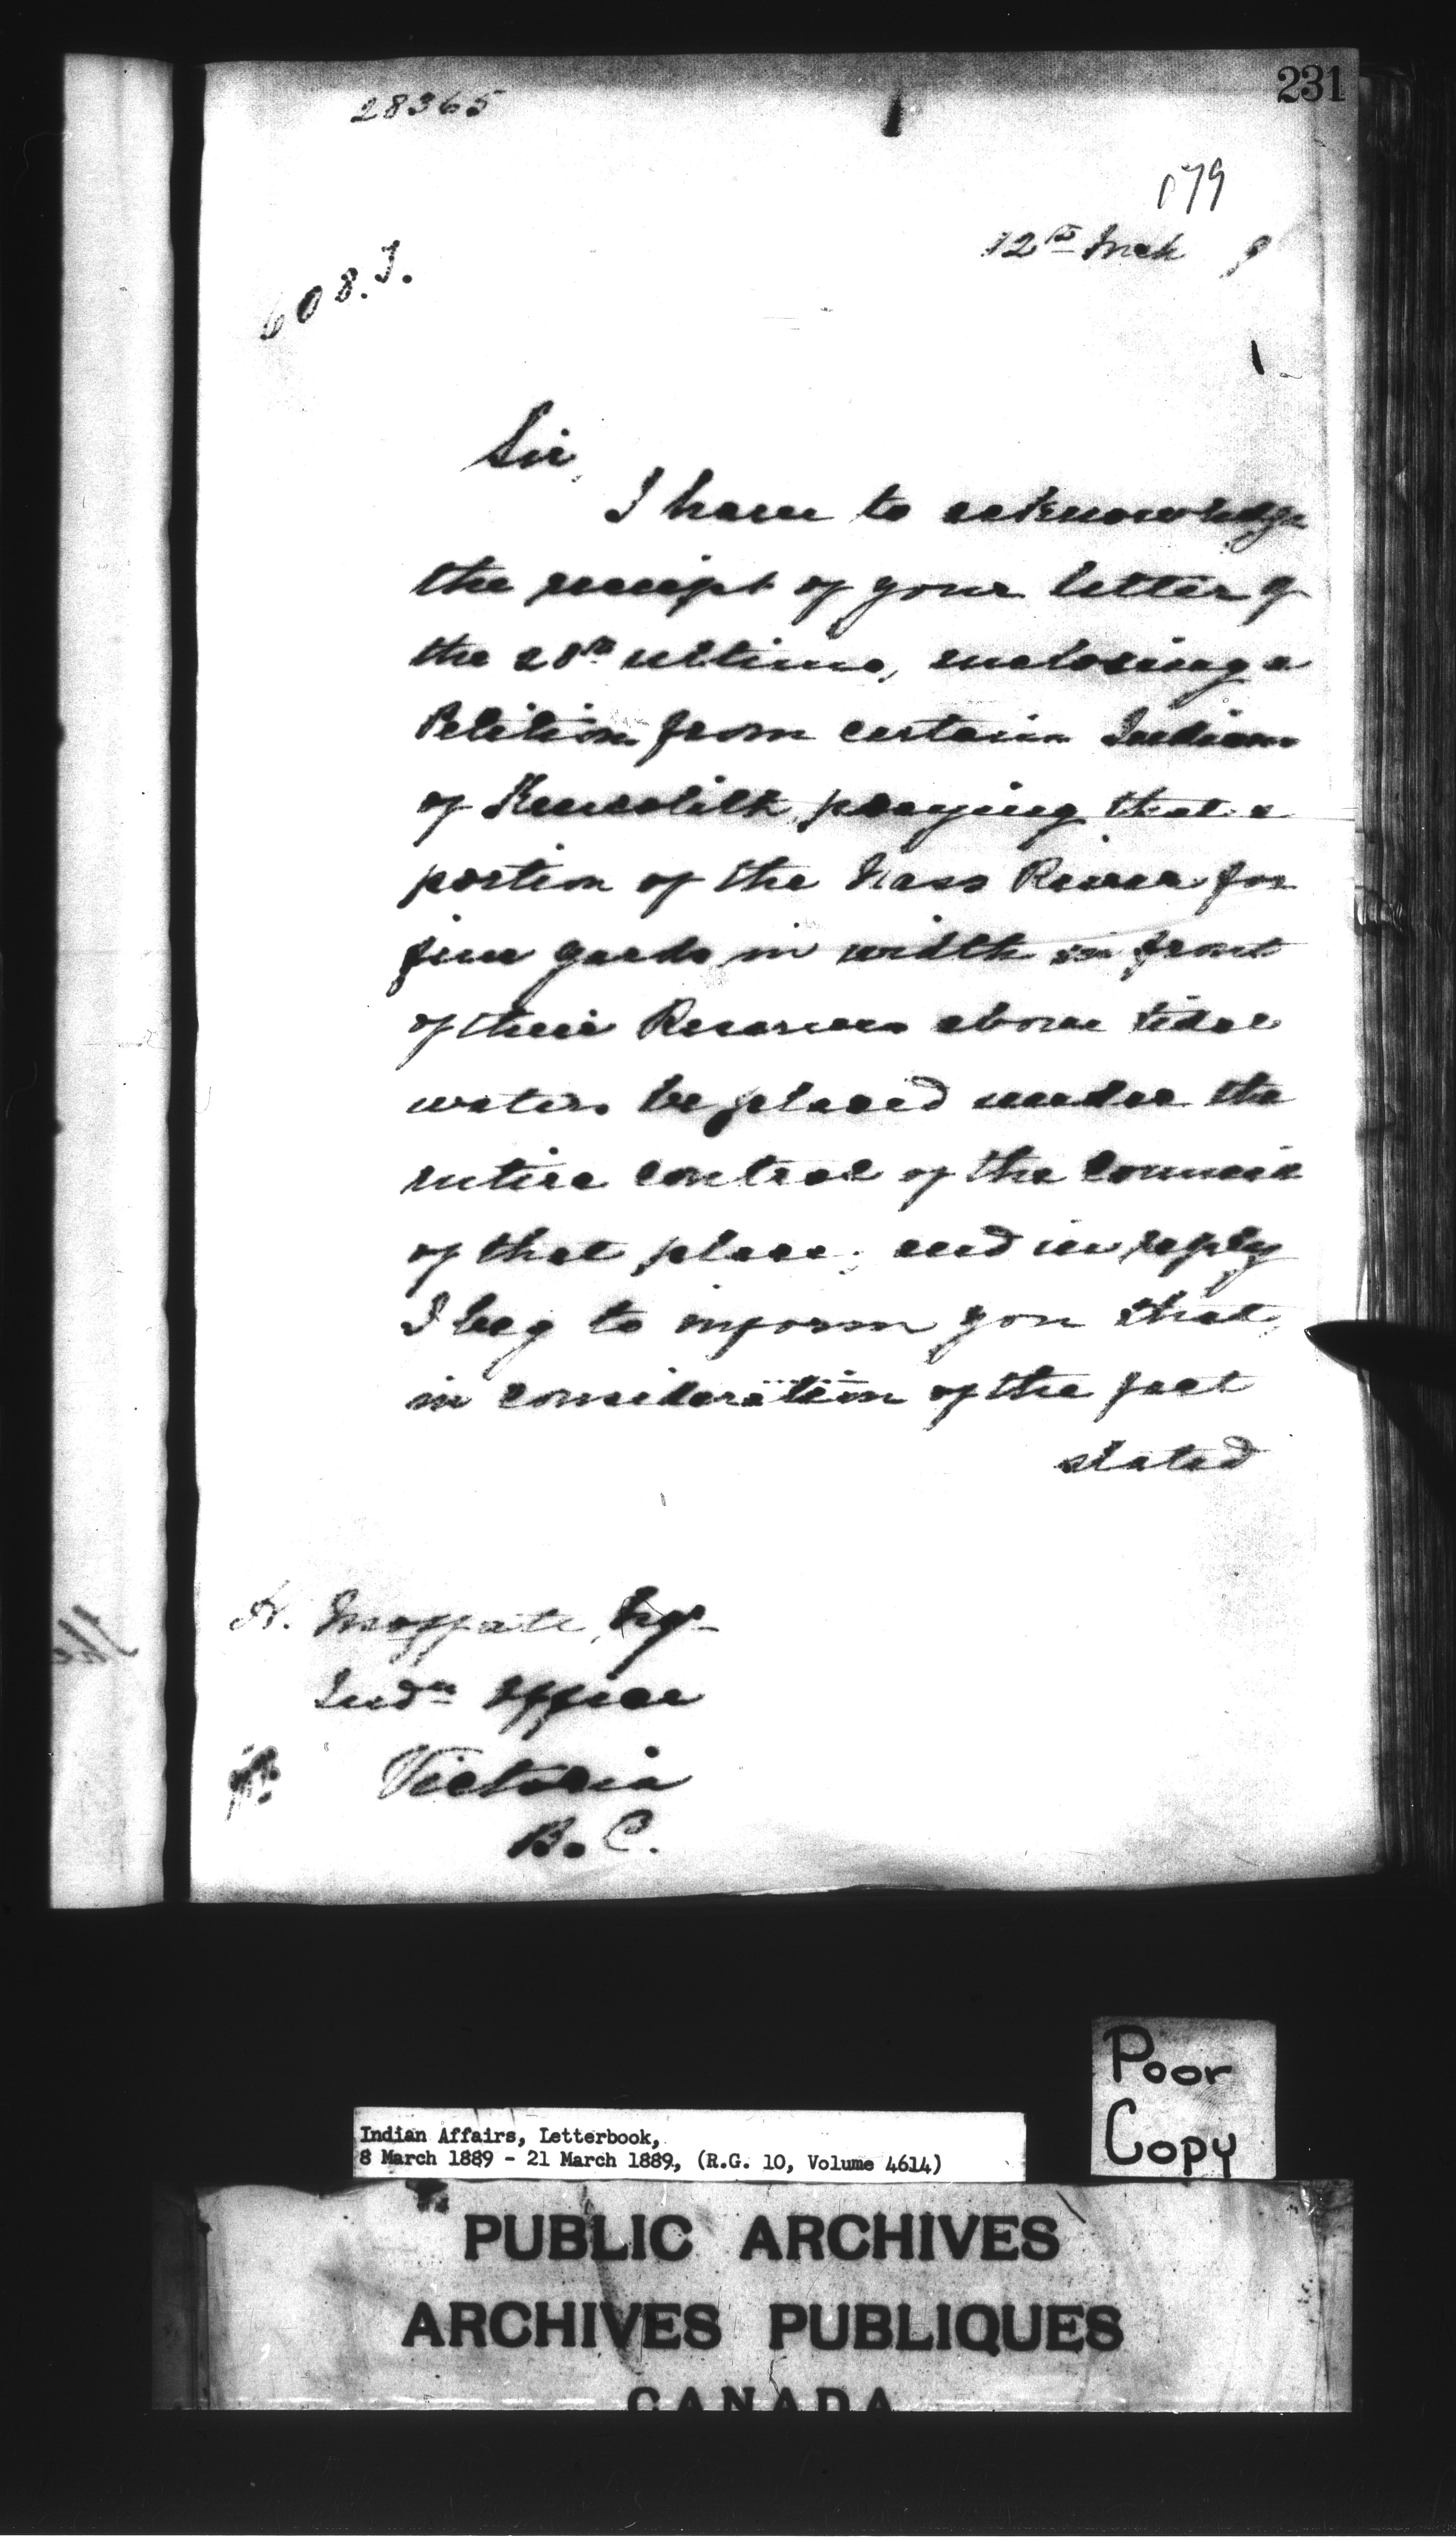 231
28365
079
12th Mch 9
608.J.
Sir,
I have to acknowledge
the receipt of your letter of
the 28th ultimo, enclosing a
Petition from certain Indians
of Kincolith, praying that a
portion of the Nass River for
five yards in width in front
of their Reserves above tidal
waters be placed under the
entire control of the Council
of that place; and in reply
I beg to inform you that,
in consideration of the fact
stated
H. Moffatt, Esqr
Indn Office
Victoria
B. C.
Poor
Copy
Indian Affairs, Letterbook,
8 March 1889 - 21 March 1889, (R.G. 10, Volume 4614)
PUBLIC ARCHIVES
ARCHIVES PUBLIQUES
CANADA